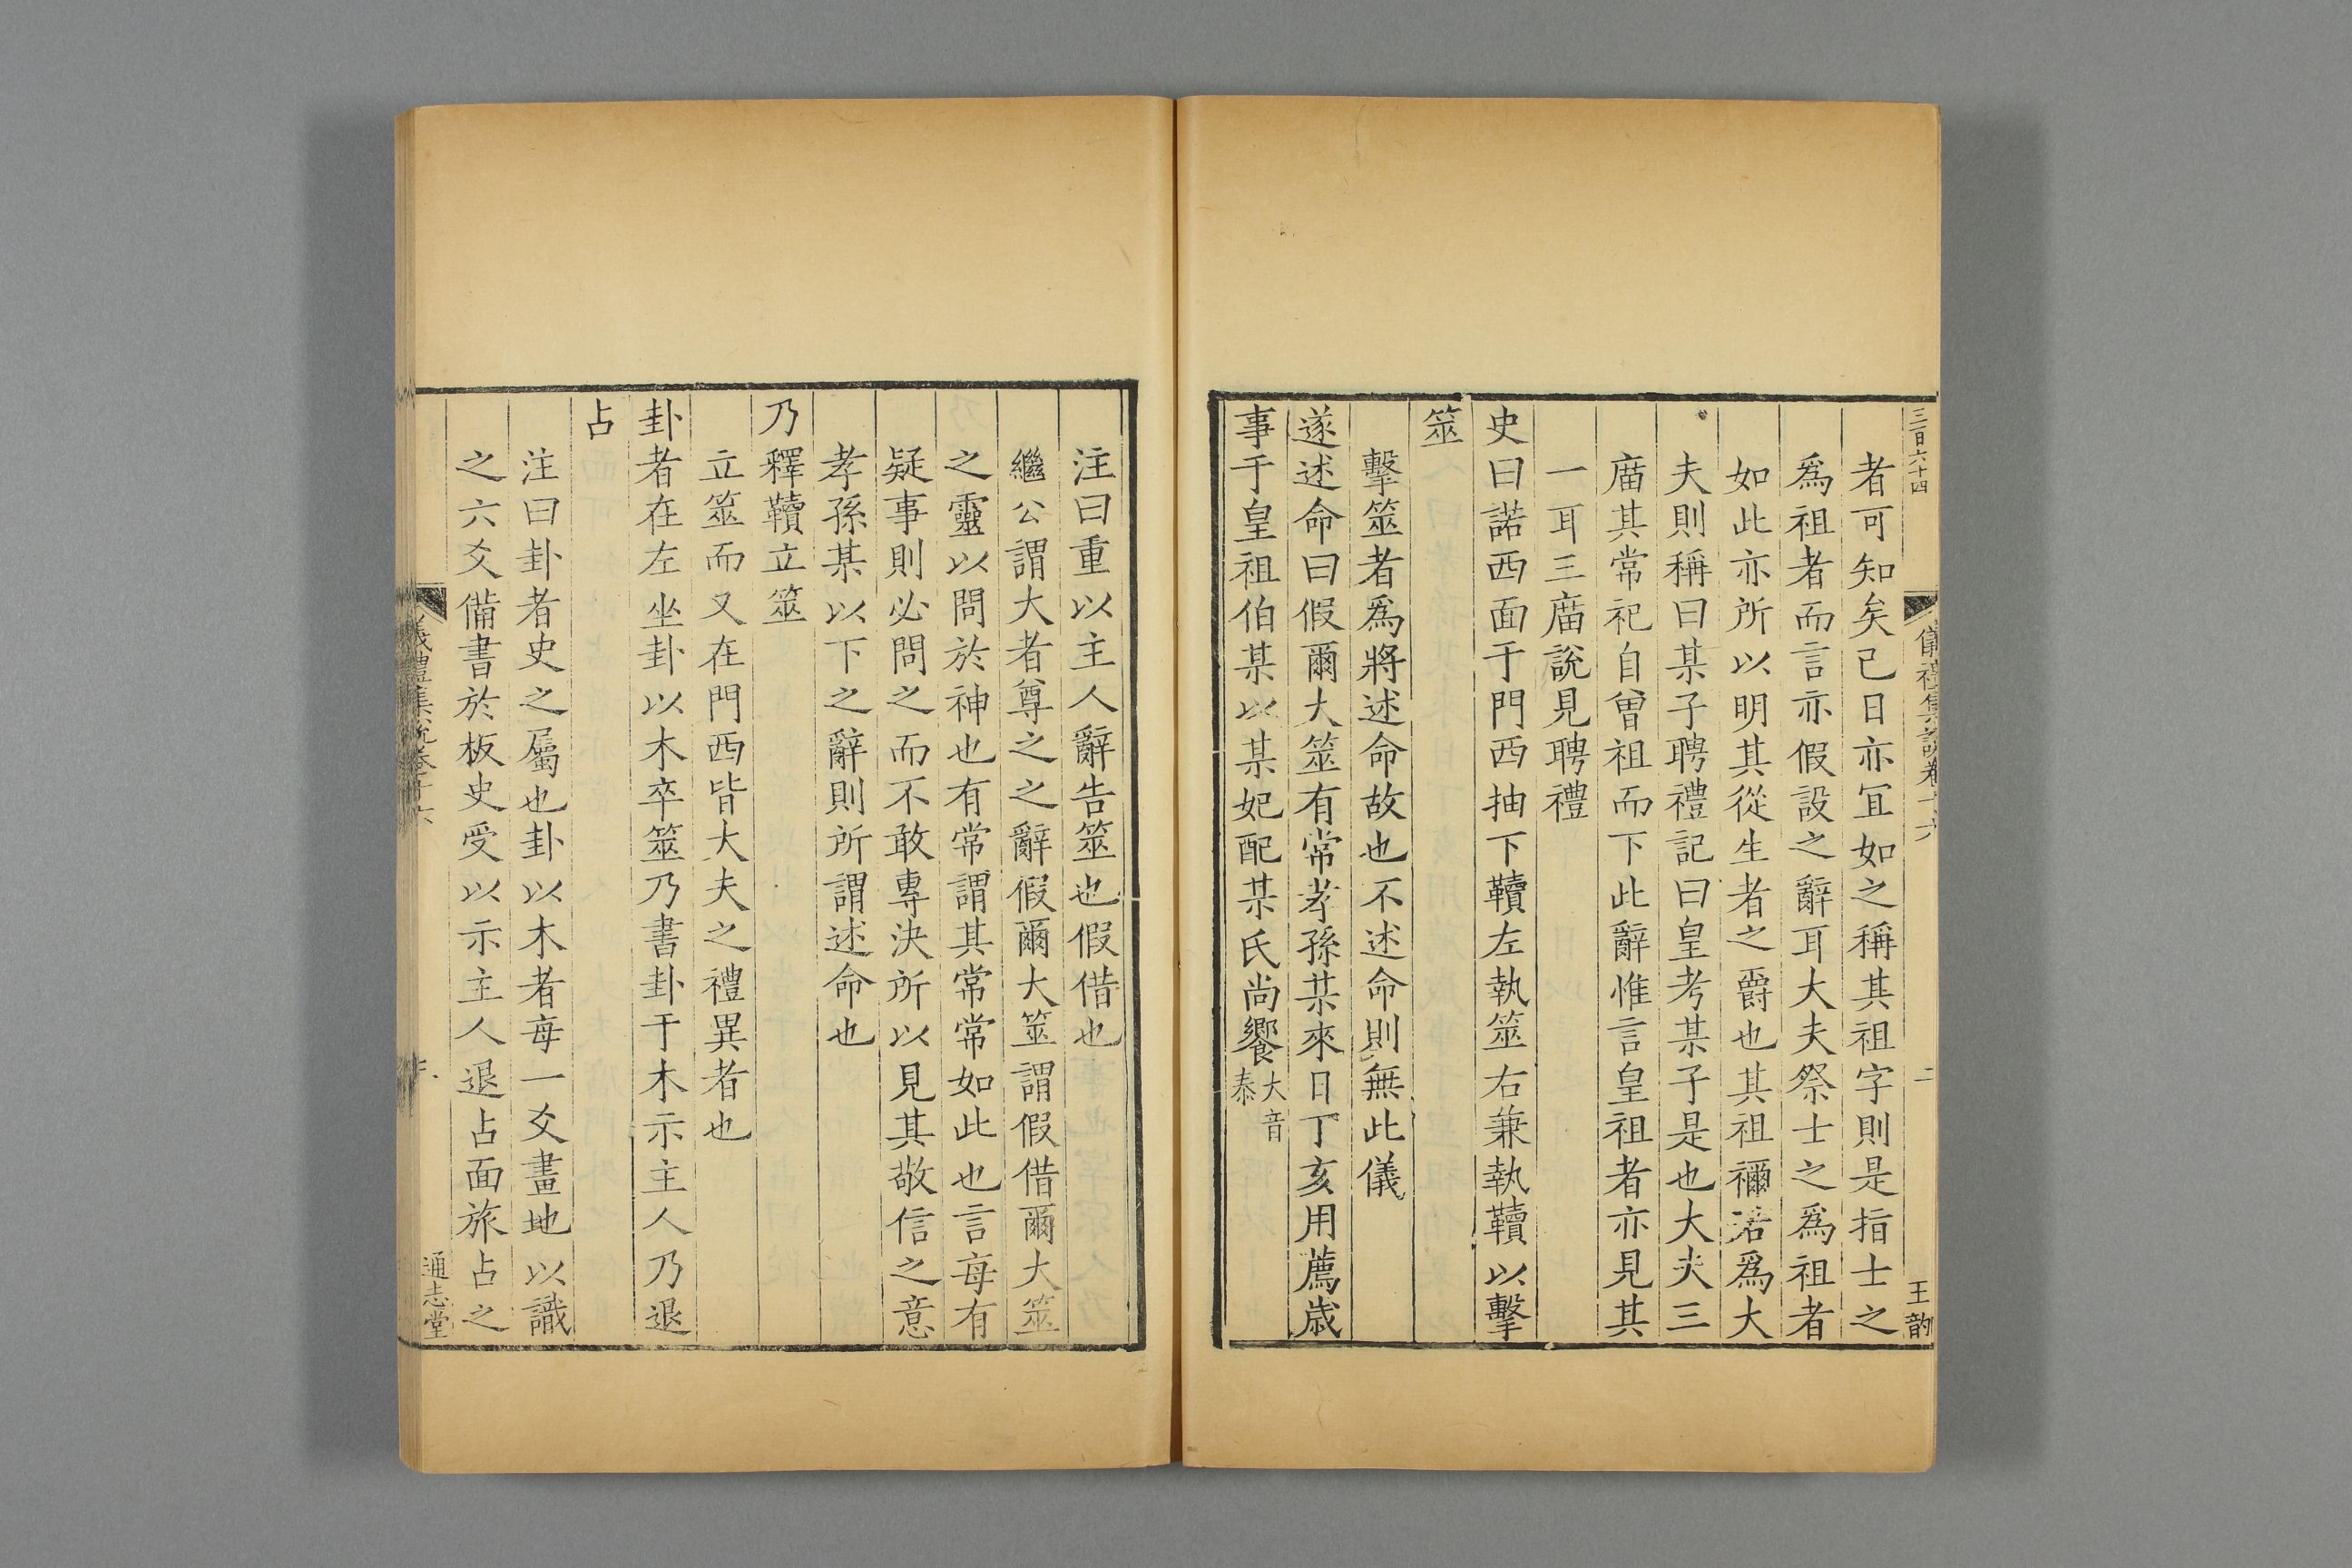 三百六十四
儀禮集說卷十六
二
王韵
者可知矣己日亦冝如之稱其祖字則是指士之
爲祖者而言亦假設之辭耳大夫祭士之爲祖者
如此亦所以明其從生者之爵也其祖禰若爲大
夫則稱曰某子聘禮記曰皇考某子是也大夫三
庿其常祀自曾祖而下此辭惟言皇祖者亦見其
一耳三庿說見聘禮
史曰諾西面于門西抽下韇左執筮右兼執韇以擊
筮
擊筮者爲將述命故也不述命則無此儀
遂述命曰假爾大筮有常孝孫某來日丁亥用薦歲
事于皇祖伯某以某妃配某氏尚饗大音
泰
注曰重以主人辭告筮也假借也
繼公謂大者尊之之辭假爾大筮謂假借爾大筮
之靈以問於神也有常謂其常常如此也言每有
疑事則必問之而不敢專決所以見其敬信之意
孝孫某以下之辭則所謂述命也
乃釋韇立筮
立筮而又在門西皆大夫之禮異者也
卦者在左坐卦以木卒筮乃書卦于木示主人乃退
占
注曰卦者史之屬也卦以木者每一爻畫地以識
之六爻備書於板史受以示主人退占面旅占之
儀禮集說卷十六
通志堂